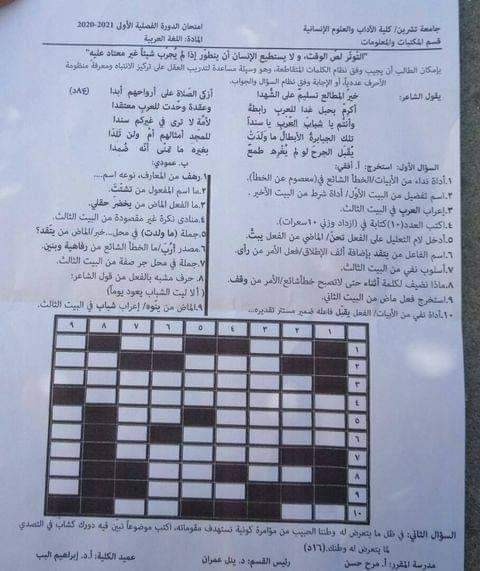 جامعة تشرين/ كلية الآداب والعلوم الإنسانية
امتحان الدورة الفصلية الأولى 2021-2020
قسم المكتبات والمعلومات
المادة: اللغة العربية
"التوتّر لصّ الوقت، و لا يستطيع الإنسان أن يتطوّر إذا لم يجرب شيئاً غير معتاد عليه"
بإمكان الطالب أن يجيب وفق نظام الكلمات المتقاطعة، وهو وسيلة مساعدة لتدريب العقل على تركيز الانتباه ومعرفة منظومة
الأحرف عددياً، أو الإجابة وفق نظام السؤال والجواب.
يقول الشاعر:
خير المطالع تسليم على الشهدا أزكى الصلاة على أرواحهم أبدا
أكرم بحبل غدا للعرب رابطة وعقدة وحّدت للعرب معتقدا
وأنتم يا شباب العرب يا سندا لأمة لا ترى في غيركم سندا
تلك الجبابرة الأبطال ما ولدت للمجد أمثالهم أمّ ولن تلدا
يقبل الجرح لو لم يغره طمع بغيره ما تمنى أنه ضمدا
السؤال الأول: استخرج: أ. أفقي:
١.أداة نداء من الأبيات/الخطأ الشائع في(معصوم عن الخطأ).
٢.اسم تفضيل من البيت الأول/ أداة شرط من البيت الأخير.
٣.إعراب العرب في البيت الثالث.
٤.اكتب العدد(١٠)كتابة في (ازداد وزني ١٠سعرات).
٥.أدخل لام التعليل على الفعل نحن/ الماضي من الفعل يبتّ.
٦.اسم الفاعل من يتقد بإضافة ألف الإطلاق/فعل الأمر من رأى.
٧.أسلوب نفي من البيت الثالث.
٨.ماذا نضيف لكلمة أثناء حتى لاتصبح خطأشائع/الأمر من وقف.
٩.استخرج فعل ماض من البيت الثاني.
١٠.أداة نفي من الأبيات/ الفعل يقبل فاعله ضمير مستتر تقديره...
ب. عمودي:
١.رهف من المعارف، نوعه اسم....
٢.ما اسم المفعول من تشتّت.
٣.ما الفعل الماض من يخضرّ حقلي.
٤.منادى نكرة غير مقصودة من البيت الثالث.
٥.جملة (ما ولدت) في محل...خبر/الماض من يتّقد؟
٦.مصدر أرّب/ما الخطأ الشائع من رفاهية وبنين.
٧.جملة في محل جر صفة من البيت الثالث.
٨. حرف مشبه بالفعل من قول الشاعر:
( ألا ليت الشباب يعود يوماً)
٩.الماض من ينوه/ إعراب شباب في البيت الثالث.
٩ ٨ ٧ ٦ ٥ ٤ ٣ ٢ ١
١
٢
٣
٤
٥
٦
٧
٨
٩
١٠
السؤال الثاني: في ظل ما يتعرض له وطننا الحبيب من مؤامرة كونية تستهدف مقوماته، اكتب موضوعاً تبين فيه دورك كشاب في التصدي
لما يتعرض له وطنك.(١٦د)
مدرسة المقرر: أ. مرح حسن رئيس القسم: د. ينل عمران عميد الكلية: أ.د. إبراهيم البب